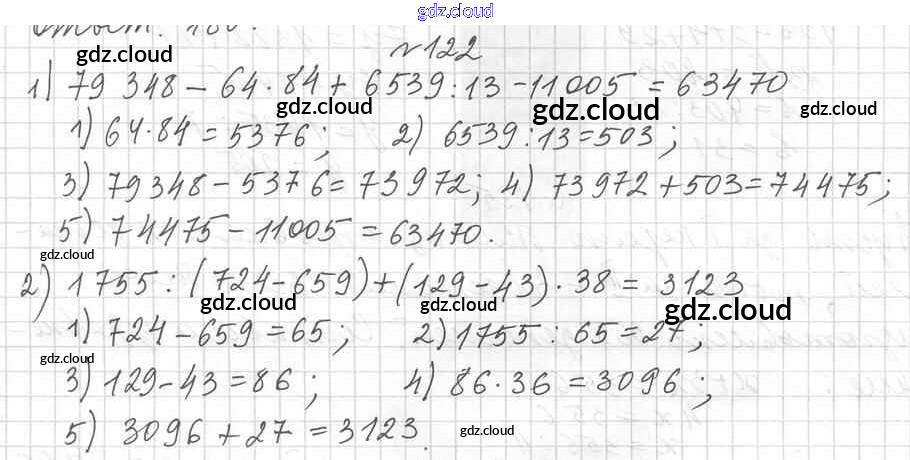 gdz.cloud
Ответ: 180.
gdz.cloud
№122
1) 79 348 - 64 · 84 + 6539 : 13 - 11 005 = 63470
gdz.cloud gdz.cloud gdz.cloud
1) 64 · 84 = 5376; 2) 6539 : 13 = 503;
3) 79348 - 5376 = 73972; 4) 73972 + 503 = 74475;
5) 74475 - 11005 = 63470.
gdz.cloud
2) 1755 : (724 - 659) + (129 - 43) · 38 = 3123
gdz.cloud gdz.cloud gdz.cloud
1) 724 - 659 = 65; 2) 1755 : 65 = 27;
gdz.cloud
3) 129 - 43 = 86; 4) 86 · 36 = 3096;
5) 3096 + 27 = 3123.
gdz.cloud